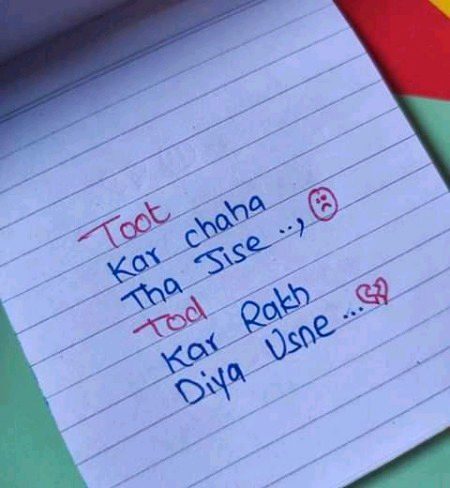 Toot
Kar chaha
Tha Jise ..,
Tod
Kar Rakh
Diya Usne ...